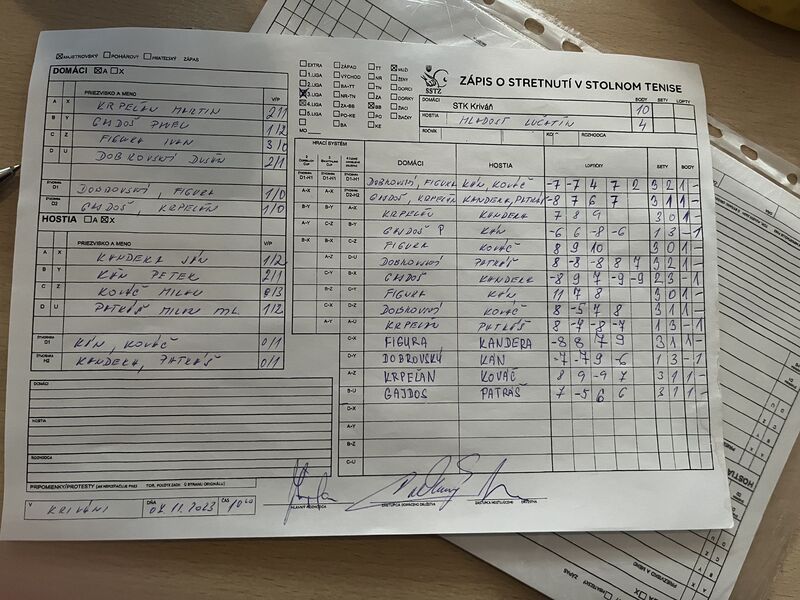 MAJSTROVSKÝ POHÁROVÝ PRIATEĽSKÝ ZÁPAS
DOMÁCI A X
PRIEZVISKO A MENO V/P
A X KRPELÁN MARTIN 2/1
B Y GAJDOŠ PAVEL 1/2
C Z FIGURA IVAN 3/0
D U DOBROVSKÝ DUŠAN 2/1
ŠTVORHRA D1 DOBROVSKÝ, FIGURA 1/0
ŠTVORHRA D2 GAJDOŠ, KRPELÁN 1/0
HOSTIA A X
PRIEZVISKO A MENO V/P
A X KANDERA JÁN 1/2
B Y KÁN PETER 2/1
C Z KOVÁČ MILAN 0/3
D U PATRÁŠ MILAN ML. 1/2
ŠTVORHRA KÁN, KOVÁČ 0/1
ŠTVORHRA H2 KANDERA, PATRÁŠ 0/1
DOMÁCI
HOSTIA
ROZHODCA
PRIPOMIENKY/PROTESTY
V KRIVÁNI DŇA 04.11.2023 ČAS 10 00
EXTRA ZÁPAD TT MUŽI
1. LIGA VÝCHOD NR ŽENY
2. LIGA BA-TT TN DORCI
3. LIGA NR-TN ZA DORKY
4. LIGA ZA-BB BB ŽIACI
5. LIGA PO-KE PO ŽIAČKY
MO BA KE
SSTZ
ZÁPIS O STRETNUTÍ V STOLNOM TENISE
BODY SETY LOPTY
DOMÁCI STK Kriváň 10
HOSTIA MLADOSŤ LUČATÍN 4
ROČNÍK KOLO ROZHODCA
HRACÍ SYSTÉM
DOMÁCI HOSTIA LOPTIČKY SETY BODY
D1-H1 D1-H1 D1-H1 DOBROVSKÝ, FIGURA KÁN, KOVÁČ -7 -7 4 7 2 3 2 1 -
A-X A-X D2-H2 GAJDOŠ, KRPELÁN KANDERA, PATRÁŠ -8 7 6 7 3 1 1 -
B-Y B-Y A-X KRPELÁN KANDERA 7 8 9 3 0 1 -
A-Y C-Z B-Y GAJDOŠ P KÁN -6 6 -8 -6 1 3 - 1
B-X B-X C-Z FIGURA KOVÁČ 8 9 10 3 0 1 -
A-Z D-U DOBROVSKÝ PATRÁŠ 8 -8 -8 8 7 3 2 1 -
C-Y GAJDOŠ KANDERA -8 9 7 -9 -9 2 3 - 1
B-Z C-Y FIGURA KÁN 11 7 8 3 0 1 -
C-X D-Z DOBROVSKÝ KOVÁČ 8 -5 7 8 3 1 1 -
A-Y A-U KRPELÁN PATRÁŠ 8 -7 -8 -7 1 3 - 1
C-X FIGURA KANDERA -8 8 7 9 3 1 1 -
D-Y DOBROVSKÝ KÁN -7 -7 9 -6 1 3 - 1
A-Z KRPEĽAN KOVÁČ 8 9 -9 7 3 1 1 -
B-U GAJDOŠ PATRÁŠ 7 -5 6 6 3 1 1 -
D-X
A-Y
B-Z
C-U
HLAVNÝ ROZHODCA ZÁSTUPCA DOMÁCEHO DRUŽSTVA ZÁSTUPCA HOSŤUJÚCEHO DRUŽSTVA